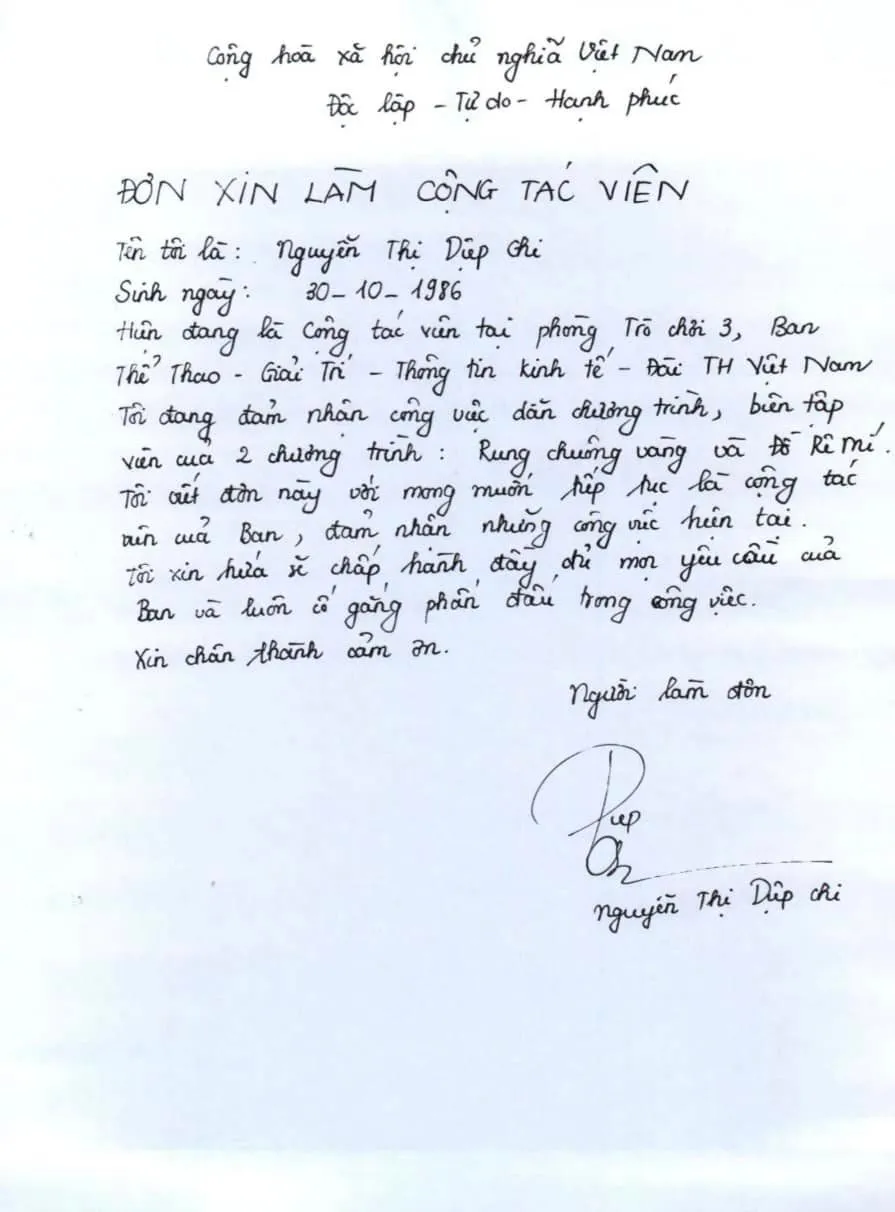 Cộng hoà xã hội chủ nghĩa Việt Nam
Độc lập - Tự do - Hạnh phúc
ĐƠN XIN LÀM CỘNG TÁC VIÊN
Tên tôi là : Nguyễn Thị Diệp Chi
Sinh ngày : 30 - 10 - 1986
Hiện đang là Cộng tác viên tại phòng Trò chơi 3, Ban
Thể Thao - Giải Trí - Thông tin kinh tế - Đài TH Việt Nam
Tôi đang đảm nhận công việc dẫn chương trình, biên tập
viên của 2 chương trình : Rung chuông vàng và Đồ Rê Mí.
Tôi viết đơn này với mong muốn tiếp tục là cộng tác
viên của Ban, đảm nhận những công việc hiện tại.
Tôi xin hứa sẽ chấp hành đầy đủ mọi yêu cầu của
Ban và luôn cố gắng phấn đấu trong công việc.
Xin chân thành cảm ơn.
Người làm đơn
Diep
Chi
Nguyễn Thị Diệp Chi